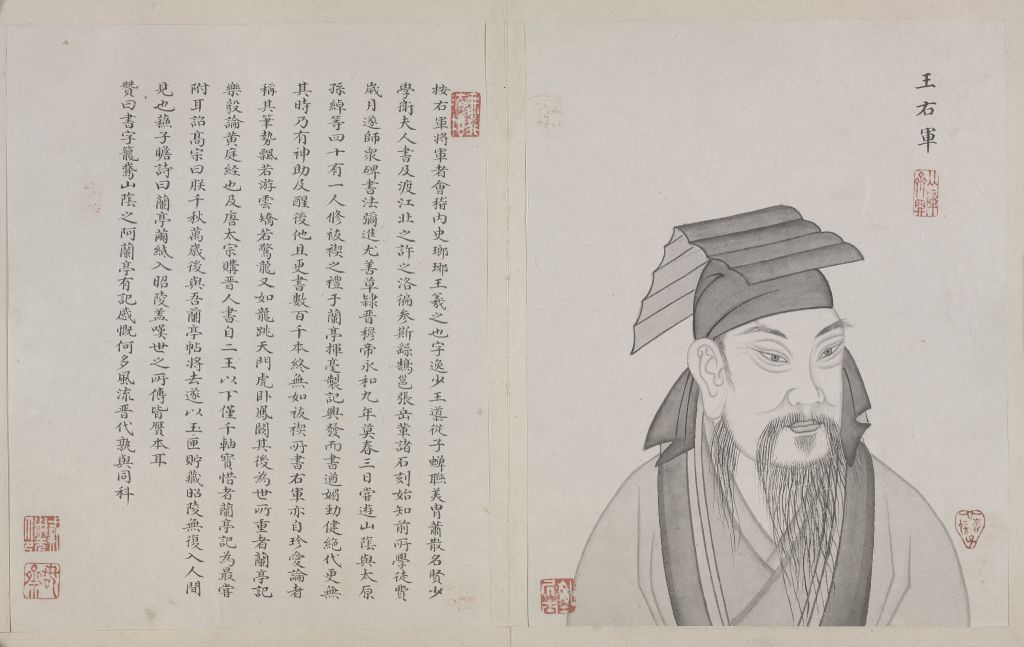 王右軍
按右軍將軍者會稽內史瑯琊王羲之也字逸少王導從子蟬聯美冑蕭散名賢少
學衛夫人書及渡江北之許之洛徧參斯繇鵠邕張岳華諸石刻始知前所學徒費
歲月遂師眾碑書法彌進尤善草隸晉穆帝永和九年莫春三日嘗遊山蔭與太原
孫綽等四十有一人修祓禊之禮于蘭亭揮毫製記興發而書遒媚勁健絕代更無
其時乃有神助及醒後他日更書數百千本終無如祓禊所書右軍亦自珍愛論者
稱其筆勢飄若游雲矯若驚龍又如龍跳天門虎卧鳳闕其後為世所重者蘭亭記
樂毅論黃庭経也及唐太宗購晉人書自二王以下僅千軸寳惜者蘭亭記為最嘗
附耳詔高宗曰朕千秋萬歲後與吾蘭亭帖將去遂以玉匣貯藏昭陵無復入人間
見也蘓子瞻詩曰蘭亭繭紙入昭陵盖嘆世之所傳皆贋本耳
贊曰書字籠鵞山蔭之阿蘭亭有記感慨何多風流晉代孰與同科